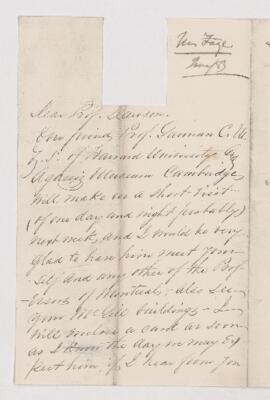 Dear Prof. Dawson.
Our friend, Prof. C. H.
of Harvard University
Agassiz Museum Cambridge
will make us a short visit
(of one day and night probably)
next week, and I would be very
glad to have him meet your
self and any other of the Prof
essors of Montreal - also see
your McGill buildings - I
will enclose a card as soon
as I know the day we may Ex
pect him, if I hear from you